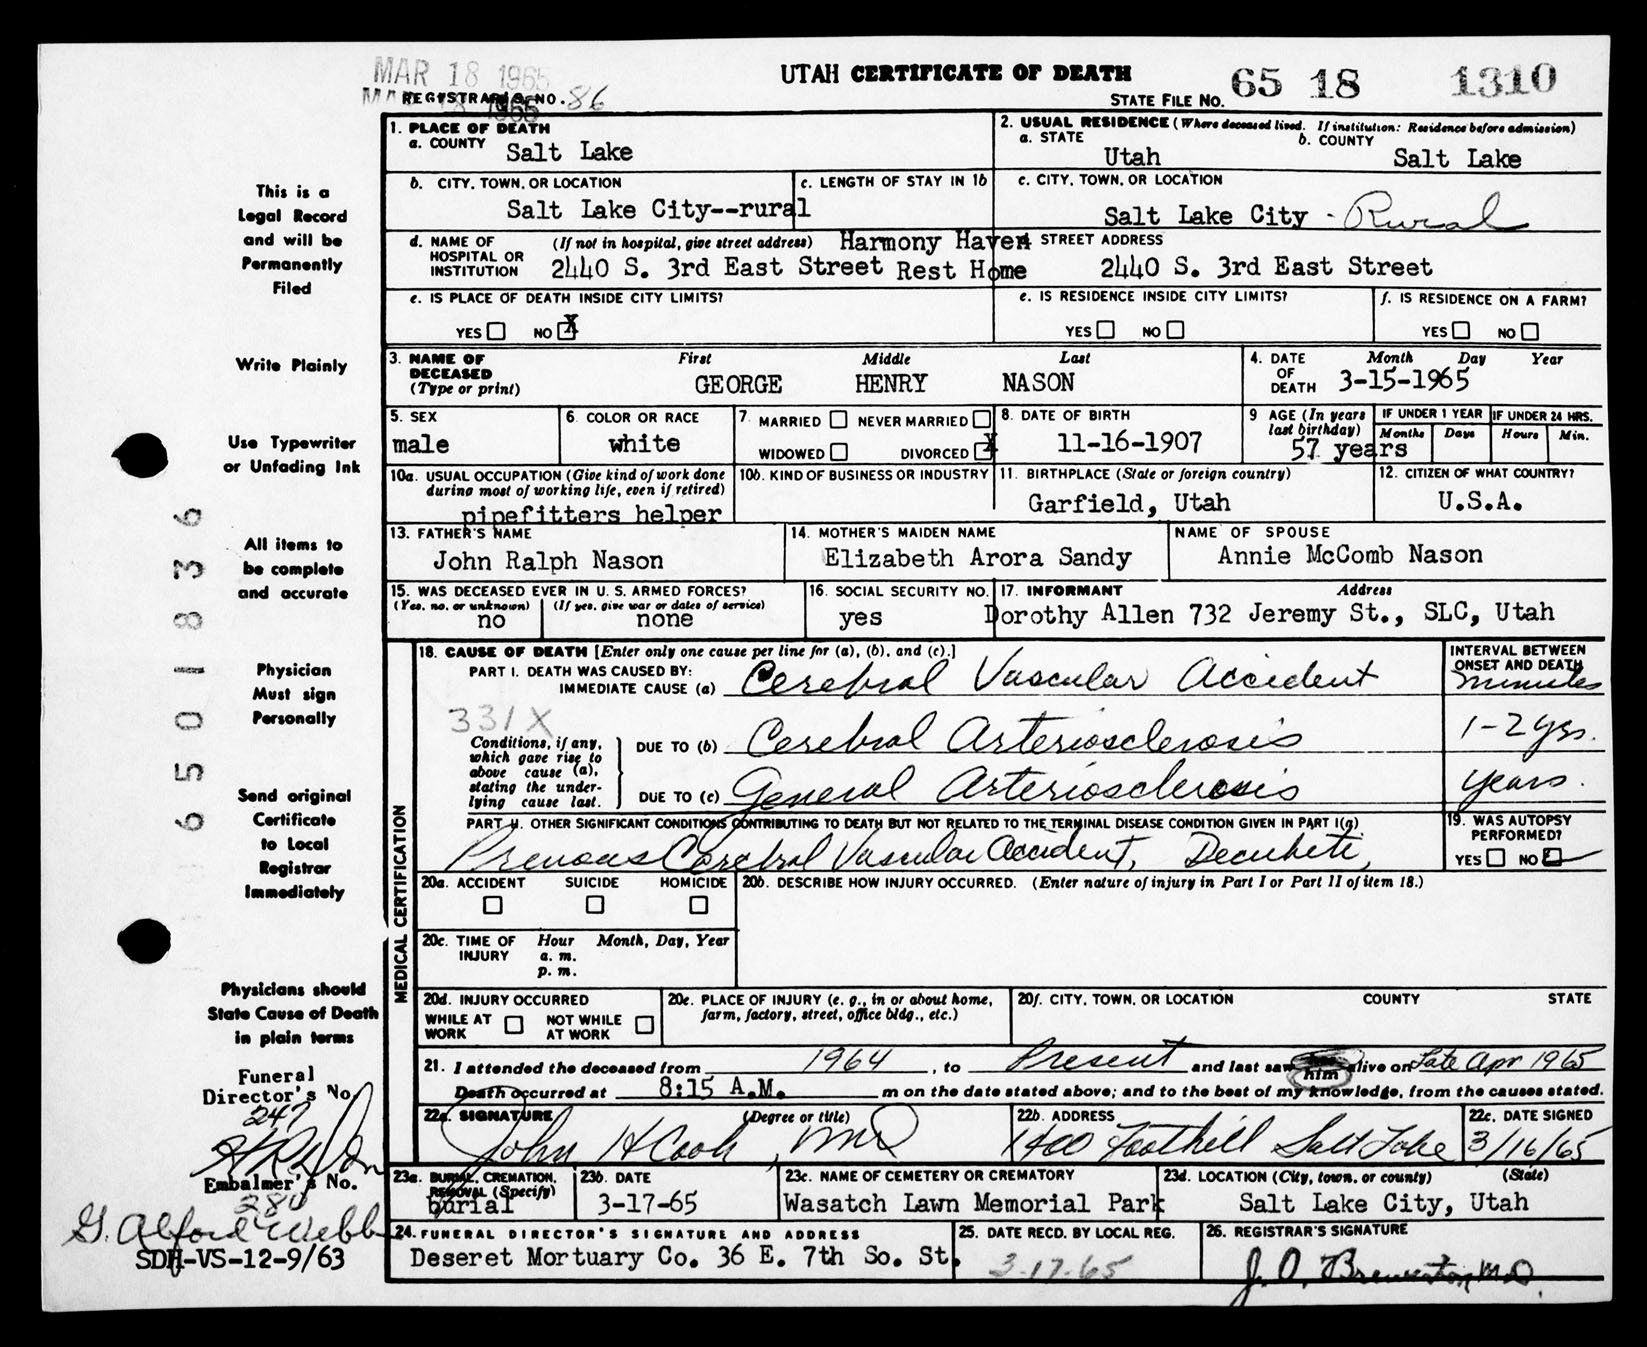 MAR 18 1965
UTAH CERTIFICATE OF DEATH
REGISTRAR'S NO. 86
STATE FILE NO. 65 18 1310
1. PLACE OF DEATH
a. COUNTY Salt Lake
2. USUAL RESIDENCE (Where deceased lived. If institution: Residence before admission)
a. STATE Utah b. COUNTY Salt Lake
b. CITY, TOWN, OR LOCATION Salt Lake City--rural
c. LENGTH OF STAY IN 1b
c. CITY, TOWN, OR LOCATION Salt Lake City - Rural
d. NAME OF HOSPITAL OR INSTITUTION (If not in hospital, give street address) Harmony Haven
2440 S. 3rd East Street Rest Home
STREET ADDRESS
2440 S. 3rd East Street
e. IS PLACE OF DEATH INSIDE CITY LIMITS?
YES NO X
e. IS RESIDENCE INSIDE CITY LIMITS?
YES NO
f. IS RESIDENCE ON A FARM?
YES NO
3. NAME OF DECEASED (Type or print)
First Middle Last
GEORGE HENRY NASON
4. DATE OF DEATH Month Day Year
3-15-1965
5. SEX
male
6. COLOR OR RACE
white
7. MARRIED NEVER MARRIED
WIDOWED DIVORCED X
8. DATE OF BIRTH
11-16-1907
9 AGE (In years last birthday)
57 years
IF UNDER 1 YEAR
Months Days
IF UNDER 24 HRS.
Hours Min.
10a. USUAL OCCUPATION (Give kind of work done during most of working life, even if retired)
pipefitters helper
10b. KIND OF BUSINESS OR INDUSTRY
11. BIRTHPLACE (State or foreign country)
Garfield, Utah
12. CITIZEN OF WHAT COUNTRY?
U.S.A.
13. FATHER'S NAME
John Ralph Nason
14. MOTHER'S MAIDEN NAME
Elizabeth Arora Sandy
NAME OF SPOUSE
Annie McComb Nason
15. WAS DECEASED EVER IN U. S. ARMED FORCES?
(Yes, no, or unknown) (If yes, give war or dates of service)
no none
16. SOCIAL SECURITY NO.
yes
17. INFORMANT Address
Dorothy Allen 732 Jeremy St., SLC, Utah
MEDICAL CERTIFICATION
18. CAUSE OF DEATH [Enter only one cause per line for (a), (b), and (c).]
PART I. DEATH WAS CAUSED BY:
IMMEDIATE CAUSE (a) Cerebral Vascular Accident
INTERVAL BETWEEN ONSET AND DEATH
minutes
331X
Conditions, if any, which gave rise to above cause (a), stating the underlying cause last.
DUE TO (b) Cerebral Arteriosclerosis 1-2 yrs.
DUE TO (c) General Arteriosclerosis years.
PART II. OTHER SIGNIFICANT CONDITIONS CONTRIBUTING TO DEATH BUT NOT RELATED TO THE TERMINAL DISEASE CONDITION GIVEN IN PART I(a)
Previous Cerebral Vascular Accident, Decubiti,
19. WAS AUTOPSY PERFORMED?
YES NO
20a. ACCIDENT SUICIDE HOMICIDE
20b. DESCRIBE HOW INJURY OCCURRED. (Enter nature of injury in Part I or Part II of item 18.)
20c. TIME OF INJURY Hour Month, Day, Year
a. m.
p. m.
20d. INJURY OCCURRED
WHILE AT WORK NOT WHILE AT WORK
20e. PLACE OF INJURY (e. g., in or about home, farm, factory, street, office bldg., etc.)
20f. CITY, TOWN, OR LOCATION COUNTY STATE
21. I attended the deceased from 1964, to Present and last saw him alive on Late Apr 1965
Death occurred at 8:15 A.M. m on the date stated above; and to the best of my knowledge, from the causes stated.
22a. SIGNATURE (Degree or title)
John H Cook, MD
22b. ADDRESS
1400 Foothill Salt Lake
22c. DATE SIGNED
3/16/65
23a. BURIAL, CREMATION, REMOVAL (Specify)
burial
23b. DATE
3-17-65
23c. NAME OF CEMETERY OR CREMATORY
Wasatch Lawn Memorial Park
23d. LOCATION (City, town, or county) (State)
Salt Lake City, Utah
24. FUNERAL DIRECTOR'S SIGNATURE AND ADDRESS
Deseret Mortuary Co. 36 E. 7th So. St.
25. DATE RECD. BY LOCAL REG.
3-17-65
26. REGISTRAR'S SIGNATURE
J. O. Brewerton, M.D.
This is a
Legal Record
and will be
Permanently
Filed
Write Plainly
Use Typewriter
or Unfading Ink
All items to
be complete
and accurate
Physician
Must sign
Personally
Send original
Certificate
to Local
Registrar
Immediately
Physicians should
State Cause of Death
in plain terms
Funeral
Director's No.
247
Embalmer's No.
280
G. Alford Webb
SDH-VS-12-9/63
6501836